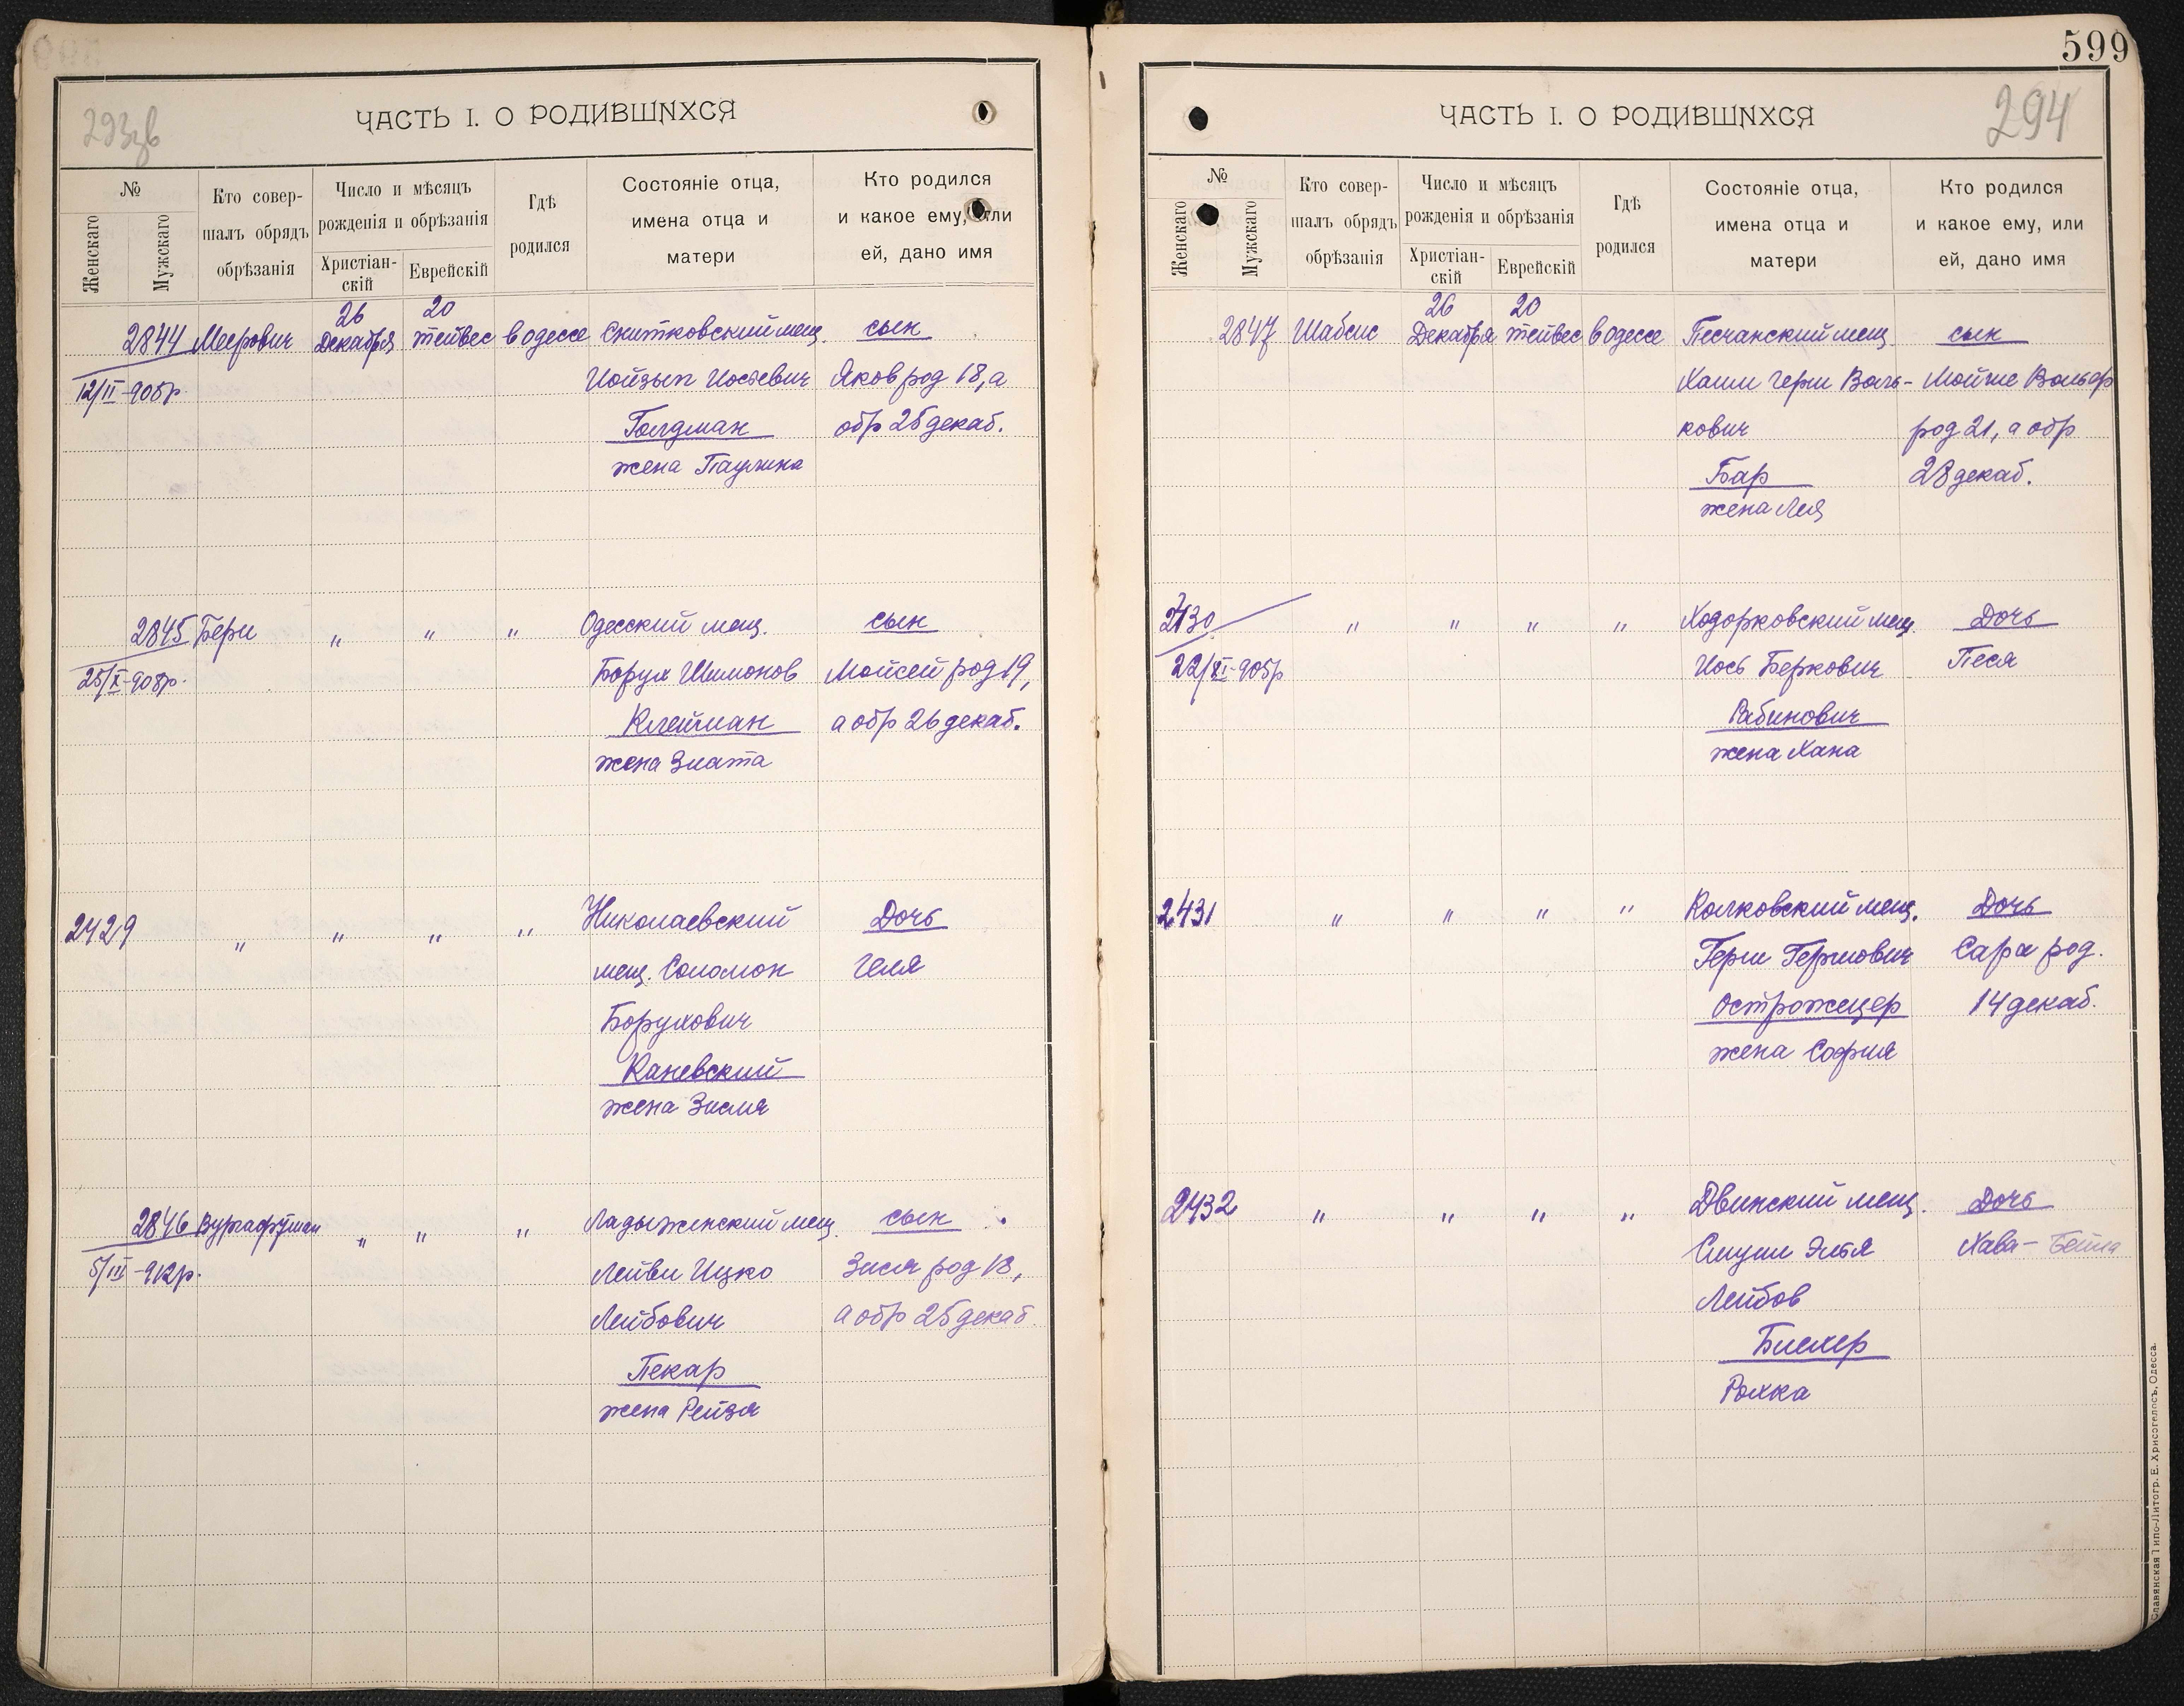 599
293зв
ЧАСТЬ I. О РОДИВШИХСЯ
№
Женскаго
Мужскаго
Кто совер-
шалъ обрядъ
обрѣзанія
Число и мѣсяцъ
рожденія и обрѣзанія
Христіан-
скій
Еврейскій
Гдѣ
родился
Состояніе отца,
имена отца и
матери
Кто родился
и какое ему, или
ей, дано имя
26 20
2844 Меерович Декабря тейвес в одессе Снитковский мещ. сын
12/II-905р. Иойзып Иосьевич Яков род 18, а
Голдман обр 25 декаб.
жена Паулина
2845 Бери " " " Одесский мещ. сын
25/X-908р. Борух Шимонов Мойсей род 19,
Клейман а обр 26 декаб.
жена Злата
2429 " " " " Николаевский Дочь
мещ. Соломон Геля
Борухович
Каневский
жена Зисля
2846 Вургафтман " " " Ладыженский мещ. сын
5/III-912р. Лейви Ицко Зися род 18,
Лейбович а обр 25 декаб.
Пекар
жена Рейзя
ЧАСТЬ I. О РОДИВШИХСЯ
294
№
Женскаго
Мужскаго
Кто совер-
шалъ обрядъ
обрѣзанія
Число и мѣсяцъ
рожденія и обрѣзанія
Христіан-
скій
Еврейскій
Гдѣ
родился
Состояніе отца,
имена отца и
матери
Кто родился
и какое ему, или
ей, дано имя
26 20
2847 Шабсис Декабря тейвес в одессе Песчанский мещ сын
Хаим Герш Воль- Мойше Вольф
кович род 21, а обр
Бар 28 декаб.
жена Лея
2430 " " " " Ходорковский мещ. Дочь
22/XI-905р Иось Беркович Песя
Рабинович
жена Хана
2431 " " " " Колковский мещ. Дочь
Герш Гершович Сара род.
Острожецер 14 декаб.
жена София
2432 " " " " Двинский мещ. Дочь
Смуил Элья Хава-Бейла
Лейбов
Блехер
Рохка
Славянская Типо-Литогр. Е. Хрисогелосъ, Одесса.